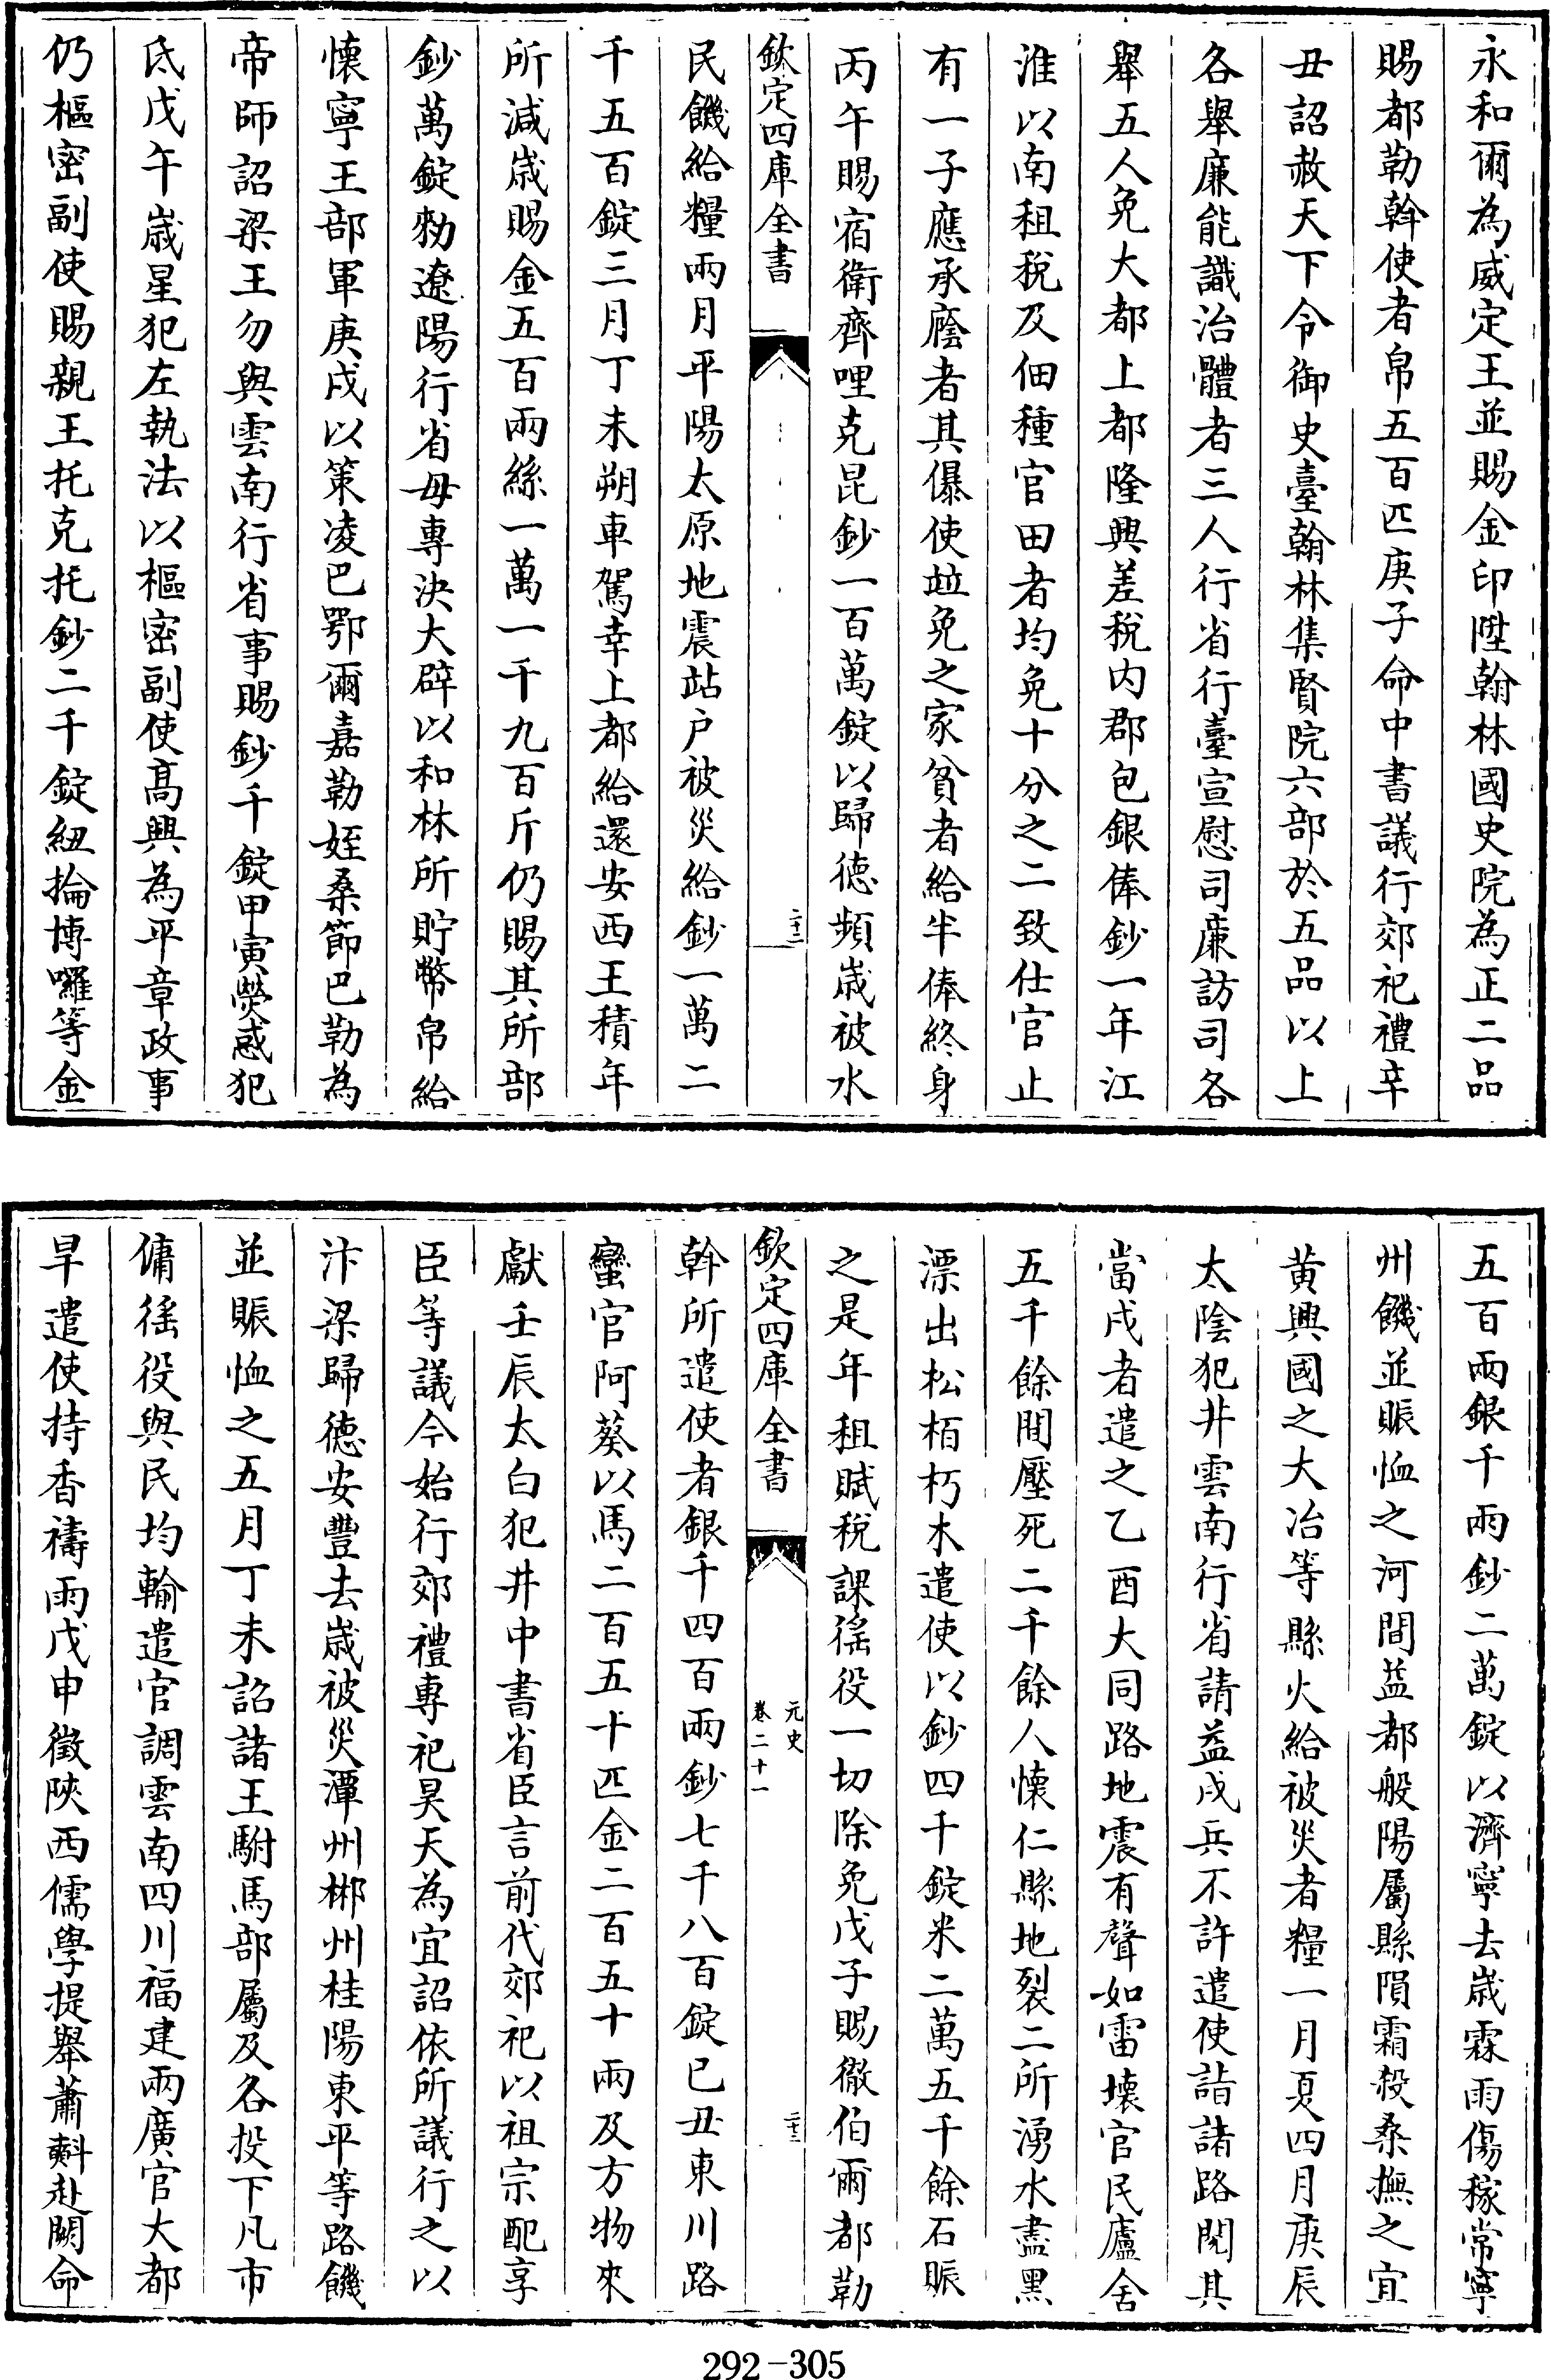 永和爾為威定王並賜金印陞翰林國史院為正二品
賜都勒斡使者帛五百匹庚子命中書議行郊祀禮辛
丑詔赦天下令御史臺翰林集賢院六部於五品以上
各舉廉能識治體者三人行省行臺宣慰司廉訪司各
舉五人免大都上都隆興差稅内郡包銀俸鈔一年江
淮以南租稅及佃種官田者均免十分之二致仕官止
有一子應承廕者其儤使竝免之家貧者給半俸終身
丙午賜宿衛齊哩克昆鈔一百萬錠以歸德頻歲被水
欽定四庫全書
二十二
民饑給糧兩月平陽太原地震站户被災給鈔一萬二
千五百錠三月丁未朔車駕幸上都給還安西王積年
所減歲賜金五百兩絲一萬一千九百斤仍賜其所部
鈔萬錠勑遼陽行省毋專決大辟以和林所貯幣帛給
懷寧王部軍庚戌以策凌巴鄂爾嘉勒姪桑節巴勒為
帝師詔梁王勿與雲南行省事賜鈔千錠甲寅熒惑犯
氐戊午歲星犯左執法以樞密副使髙興為平章政事
仍樞密副使賜親王托克托鈔二千錠紐掄博囉等金
五百兩銀千兩鈔二萬錠以濟寧去歲霖雨傷稼常寧
州饑並賑恤之河間益都般陽屬縣隕霜殺桑撫之宜
黄興國之大冶等縣火給被災者糧一月夏四月庚辰
太陰犯井雲南行省請益戍兵不許遣使詣諸路閱其
當戍者遣之乙酉大同路地震有聲如雷壞官民廬舍
五千餘間壓死二千餘人懷仁縣地裂二所湧水盡黑
漂出松栢朽木遣使以鈔四千錠米二萬五千餘石賑
之是年租賦稅課徭役一切除免戊子賜徹伯爾都勒
欽定四庫全書
元史
卷二十一
二十三
斡所遣使者銀千四百兩鈔七千八百錠已丑東川路
蠻官阿葵以馬二百五十匹金二百五十兩及方物來
獻壬辰太白犯井中書省臣言前代郊祀以祖宗配享
臣等議今始行郊禮專祀昊天為宜詔依所議行之以
汴梁歸德安豐去歲被災潭州郴州桂陽東平等路饑
並賑恤之五月丁未詔諸王駙馬部屬及各投下凡市
傭徭役與民均輸遣官調雲南四川福建兩廣官大都
旱遣使持香禱雨戊申徵陝西儒學提舉蕭㪺赴闕命
292-305